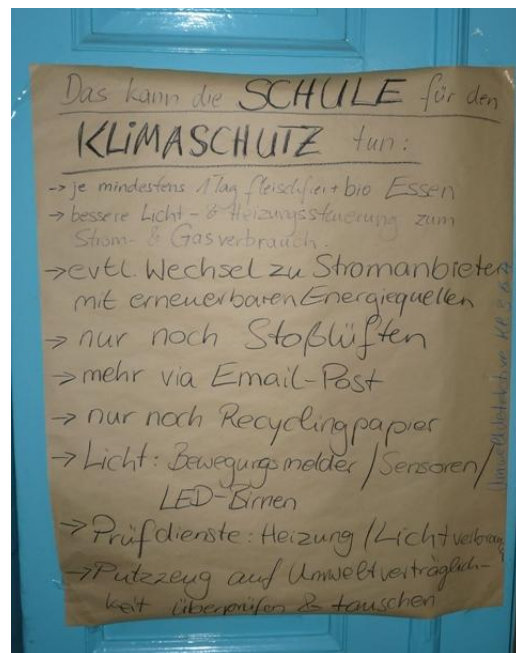 Das kann die SCHULE für den
KLIMASCHUTZ tun:
-> je mindestens 1 Tag fleischfrei + bio Essen
-> bessere Licht- & Heizungssteuerung zum
Strom- & Gasverbrauch.
-> evtl. Wechsel zu Stromanbieter
mit erneuerbaren Energiequellen
-> nur noch Stoßlüften
-> mehr via Email-Post
-> nur noch Recyclingpapier
-> Licht: Bewegungsmelder / Sensoren /
LED-Birnen
-> Prüfdienste: Heizung / Lichtverbrauch
-> Putzzeug auf Umweltverträglich-
keit überprüfen & tauschen
Umweltdetektive